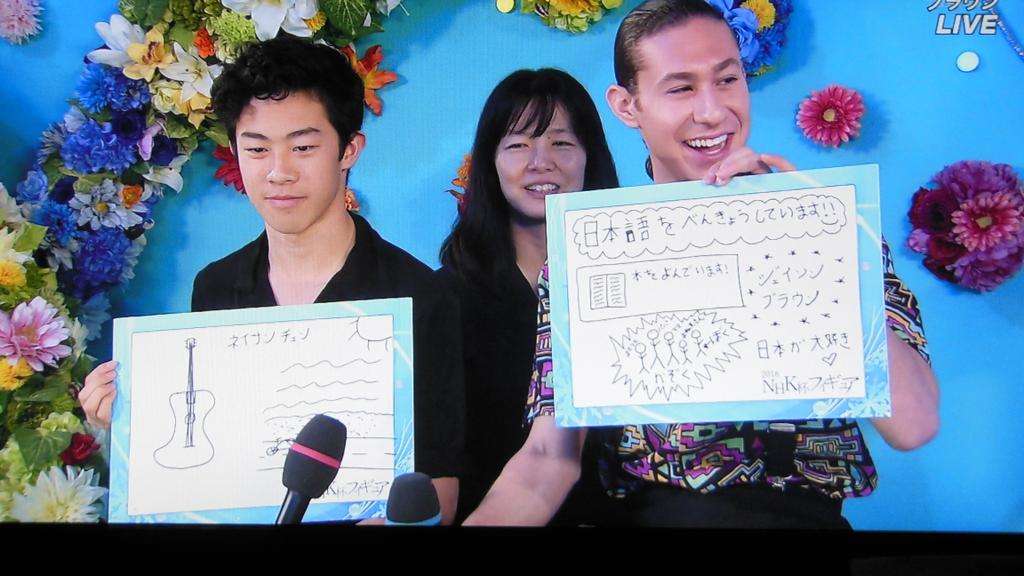 ブラウン
LIVE
ネイサン チェン
NHK杯フィギュア
日本語をべんきょうしています!!
本をよんでいます!
ジェイソン
ブラウン
ぼく
かぞく
日本が大好き
2018
NHK杯フィギュア